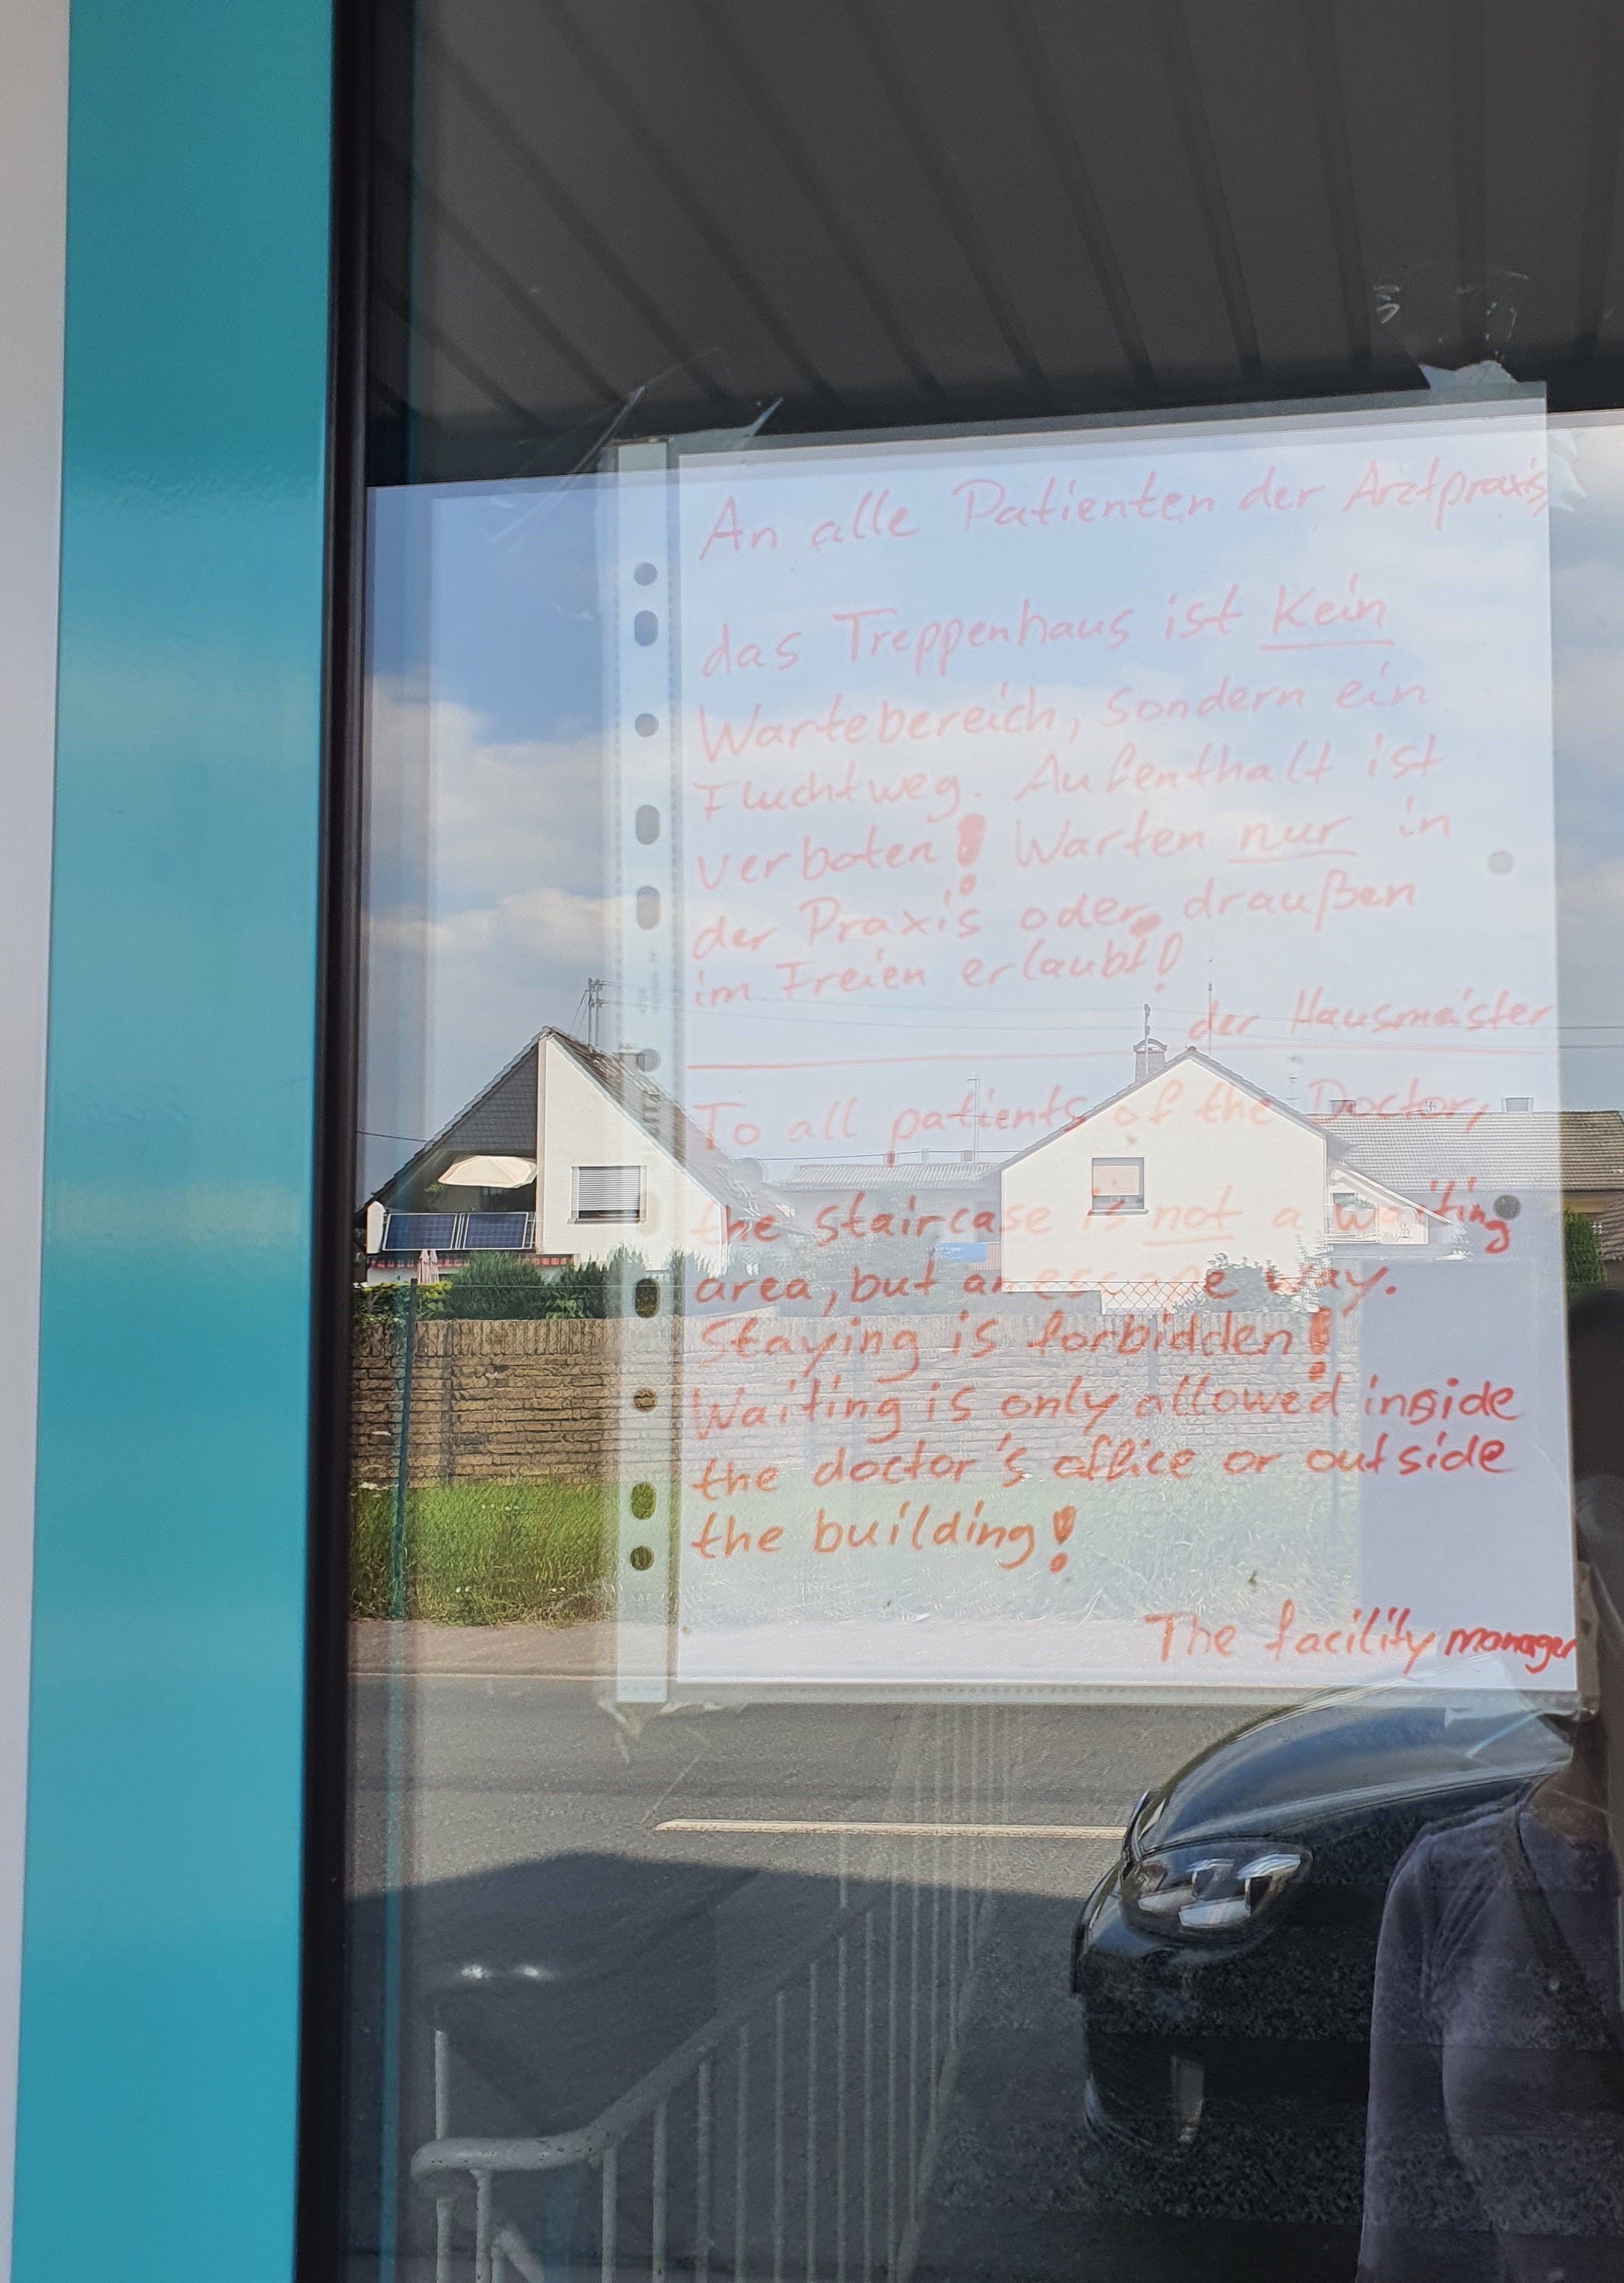 An alle Patienten der Arztpraxis,
das Treppenhaus ist kein
Wartebereich, sondern ein
Fluchtweg. Aufenthalt ist
verboten! Warten nur in
der Praxis oder draußen
im Freien erlaubt!
der Hausmeister
To all patients of the Doctor,
the staircase is not a waiting
area, but an escape way.
Staying is forbidden!
Waiting is only allowed inside
the doctor's office or outside
the building!
The facility manager